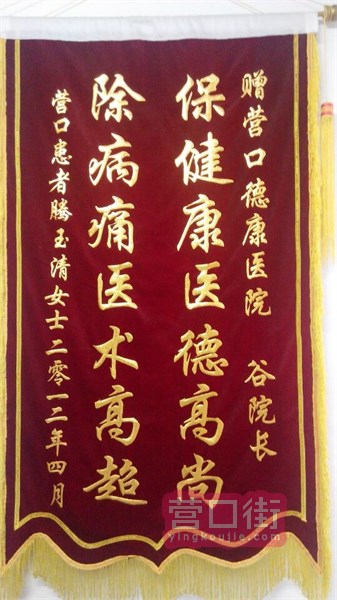 赠营口德康医院 谷院长
保健康医德高尚
除病痛医术高超
营口患者腾玉清女士二零一二年四月
营口街
yingkoujie.com